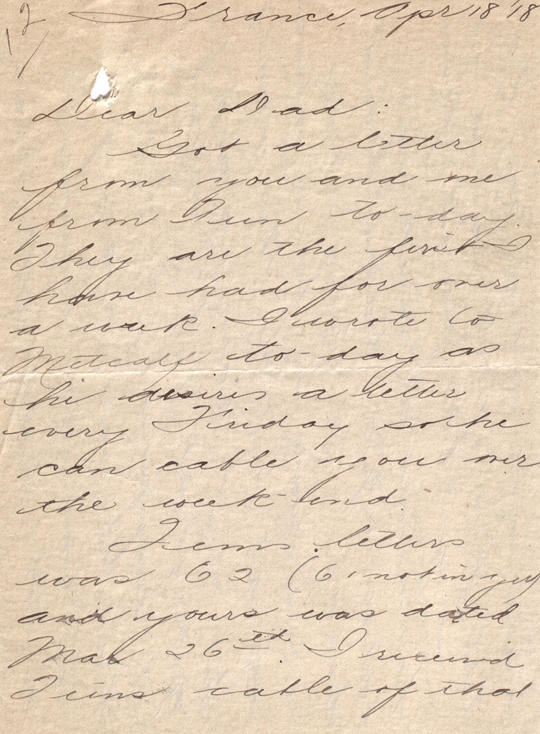 12
France, Apr 18 '18
Dear Dad:
Got a letter
from you and one
from to-day.
They are the first I
have had for over
a week. I wrote to
Metcalf to-day as
he desires a letter
every Friday so he
can cable you over
the week-end.
letters
was 62 (61 not in yet)
and yours was dated
Mar 26th. I received
cable of that